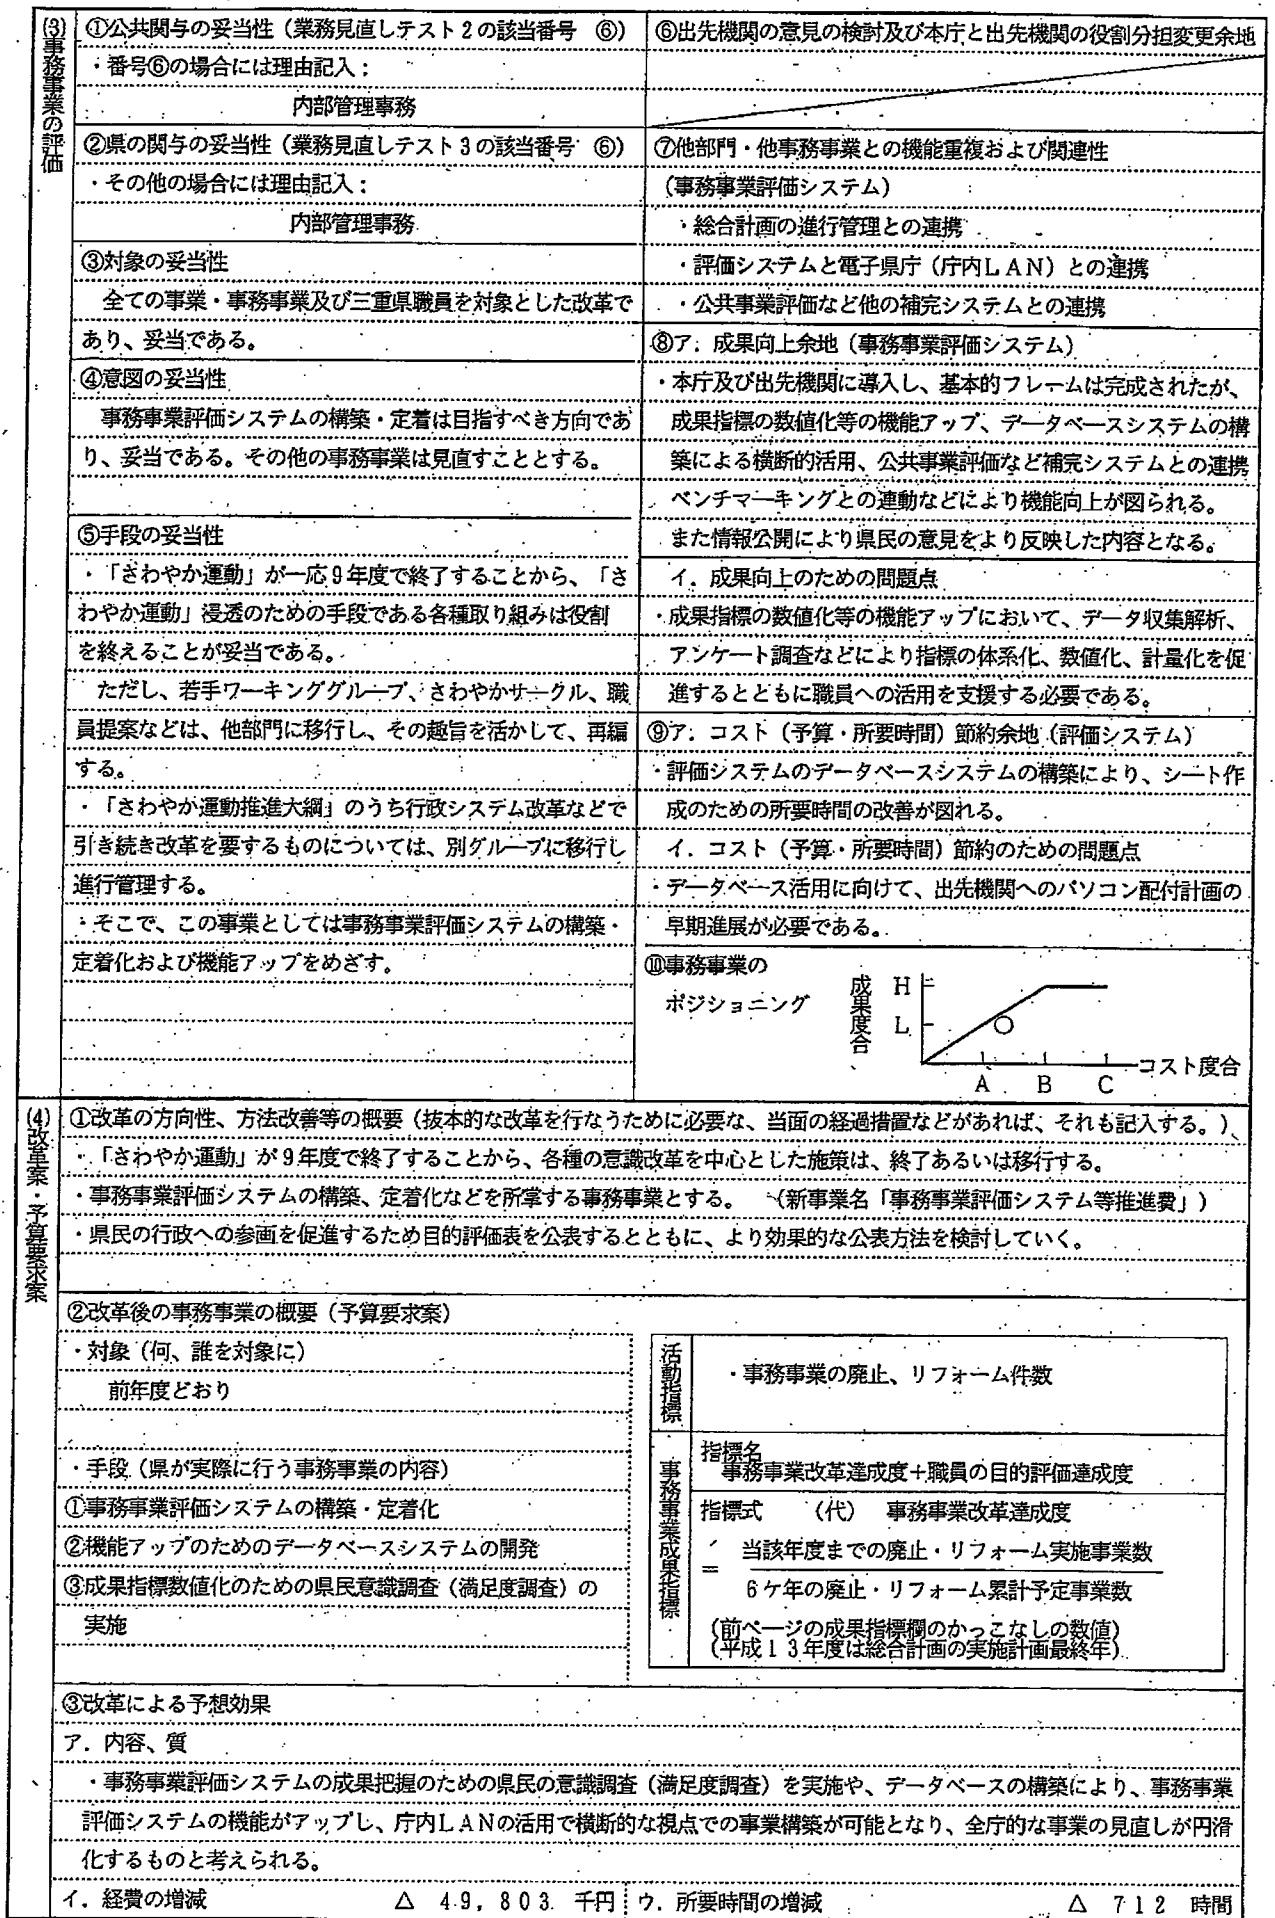 (3)事務事業の評価
①公共関与の妥当性（業務見直しテスト2の該当番号　⑥）
・番号⑥の場合には理由記入：
内部管理事務
②県の関与の妥当性（業務見直しテスト3の該当番号　⑥）
・その他の場合には理由記入：
内部管理事務
③対象の妥当性
全ての事業・事務事業及び三重県職員を対象とした改革で
あり、妥当である。
④意図の妥当性
事務事業評価システムの構築・定着は目指すべき方向であ
り、妥当である。その他の事務事業は見直すこととする。
⑤手段の妥当性
・「さわやか運動」が一応9年度で終了することから、「さ
わやか運動」浸透のための手段である各種取り組みは役割
を終えることが妥当である。
ただし、若手ワーキンググループ、さわやかサークル、職
員提案などは、他部門に移行し、その趣旨を活かして、再編
する。
・「さわやか運動推進大綱」のうち行政システム改革などで
引き続き改革を要するものについては、別グループに移行し
進行管理する。
・そこで、この事業としては事務事業評価システムの構築・
定着化および機能アップをめざす。
⑥出先機関の意見の検討及び本庁と出先機関の役割分担変更余地
⑦他部門・他事務事業との機能重複および関連性
（事務事業評価システム）
・総合計画の進行管理との連携
・評価システムと電子県庁（庁内ＬＡＮ）との連携
・公共事業評価など他の補完システムとの連携
⑧ア．成果向上余地（事務事業評価システム）
・本庁及び出先機関に導入し、基本的フレームは完成されたが、
成果指標の数値化等の機能アップ、データベースシステムの構
築による横断的活用、公共事業評価など補完システムとの連携
ベンチマーキングとの連動などにより機能向上が図られる。
また情報公開により県民の意見をより反映した内容となる。
イ．成果向上のための問題点
・成果指標の数値化等の機能アップにおいて、データ収集解析、
アンケート調査などにより指標の体系化、数値化、計量化を促
進するとともに職員への活用を支援する必要である。
⑨ア．コスト（予算・所要時間）節約余地（評価システム）
・評価システムのデータベースシステムの構築により、シート作
成のための所要時間の改善が図れる。
イ．コスト（予算・所要時間）節約のための問題点
・データベース活用に向けて、出先機関へのパソコン配付計画の
早期進展が必要である。
⑩事務事業の
ポジショニング
成果度合
H
L
コスト度合
A　B　C
(4)改革案・予算要求案
①改革の方向性、方法改善等の概要（抜本的な改革を行なうために必要な、当面の経過措置などがあれば、それも記入する。）
・「さわやか運動」が9年度で終了することから、各種の意識改革を中心とした施策は、終了あるいは移行する。
・事務事業評価システムの構築、定着化などを所掌する事務事業とする。　（新事業名「事務事業評価システム等推進費」）
・県民の行政への参画を促進するため目的評価表を公表するとともに、より効果的な公表方法を検討していく。
②改革後の事務事業の概要（予算要求案）
・対象（何、誰を対象に）
前年度どおり
・手段（県が実際に行う事務事業の内容）
①事務事業評価システムの構築・定着化
②機能アップのためのデータベースシステムの開発
③成果指標数値化のための県民意識調査（満足度調査）の
実施
活動指標
・事務事業の廃止、リフォーム件数
事務事業成果指標
指標名
事務事業改革達成度＋職員の目的評価達成度
指標式　（代）　事務事業改革達成度
＝　当該年度までの廃止・リフォーム実施事業数
6ケ年の廃止・リフォーム累計予定事業数
（前ページの成果指標欄のかっこなしの数値）
（平成13年度は総合計画の実施計画最終年）
③改革による予想効果
ア．内容、質
・事務事業評価システムの成果把握のための県民の意識調査（満足度調査）を実施や、データベースの構築により、事務事業
評価システムの機能がアップし、庁内ＬＡＮの活用で横断的な視点での事業構築が可能となり、全庁的な事業の見直しが円滑
化するものと考えられる。
イ．経費の増減　△　49,803　千円
ウ．所要時間の増減　△　712　時間